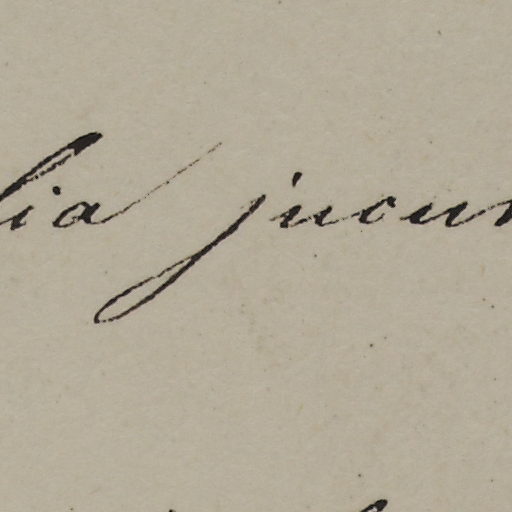 lia jucun